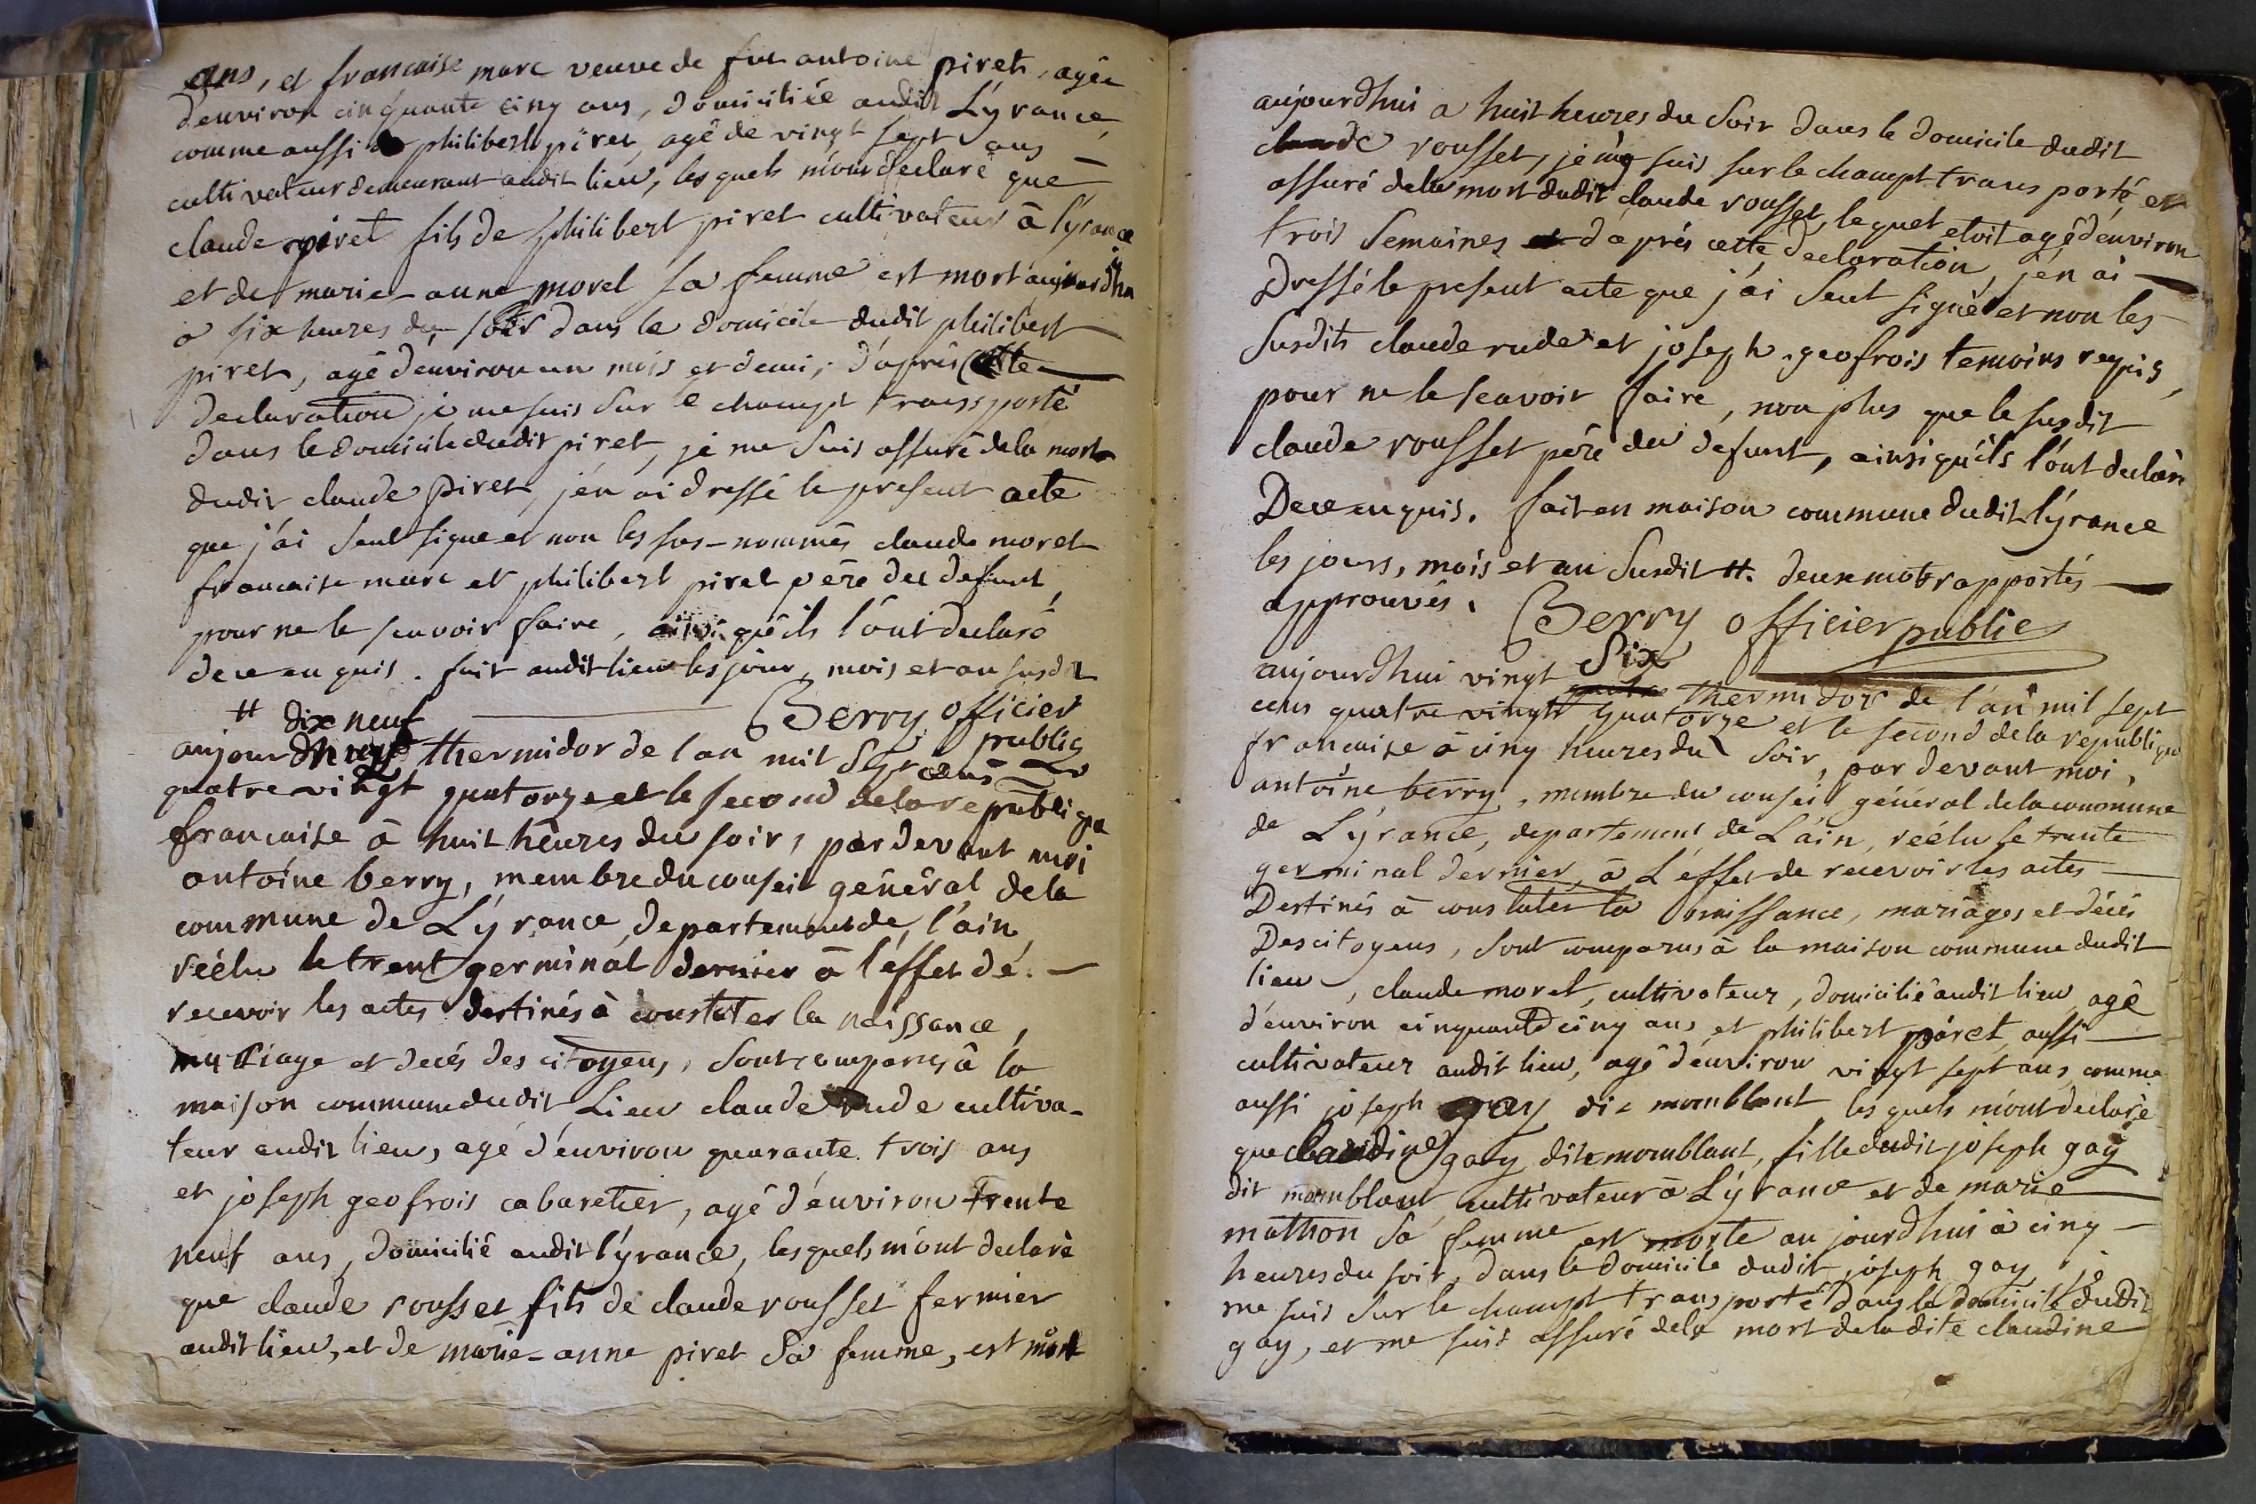 ans, et francaise marc veuve de fut antoine piret, agée
d'environ cinquante cinq ans, domiciliée audit Lÿrance,
comme aussi philibert piret, agé de vingt sept ans
cultivateur demeurant audit lieu, les quels m'ont declaré que
claude piret fils de philibert piret cultivateur à lÿrance
et de marie-anne morel sa femme est mort aujourdhui
a six heures du soir dans le domicile dudit philibert
piret, agé d'environ un mois et demi; d'après cette
declaration je me suis sur le champt transporté
dans le domicile dudit piret, je me suis assuré de la mort
dudit claude piret, j'en ai dressé le present acte
que j'ai seul signe et non les sus-nommés claude moret
francaise marc et philibert piret père du defunt,
pour ne le scavoir faire, ainsi qu'ils l'ont declaré
de ce enquis. fait audit lieu les jour, mois et an susdit
Berry officier
public
# dix neuf
aujourdhuy thermidor de l'an mil sept cens
quatre vingt quatorze et le second de la republique
francaise à huit heures du soir, par devant moi
antoine berry, membre du conseil général de la
commune de Lÿrance, departement de l'ain,
réélu le trent germinal dernier à l'effet de
recevoir les actes destinés à constater la naissance,
mariage et decés des citoyens, sont comparus à la
maison commune dudit Lieu claude rude cultiva-
teur audit lieu, agé d'environ quarante trois ans
et joseph geofrois cabaretier, agé d'environ trente
neuf ans, domicilié audit lÿrance, lesquels m'ont declaré
que claude rousset fils de claude rousset fermier
audit lieu, et de marie-anne piret sa femme, est mort
aujourdhui a huit heures du soir dans le domicile dudit
claude rousset, je me suis sur le champt transporté, et
assuré de la mort dudit claude rousset, lequel etoit agé d'environ
trois semaines d'après cette declaration, j'en ai
dressé le present acte que j'ai seul signé et non les
susdits claude rude et joseph geofrois temoins requis,
pour ne le scavoir faire, non plus que le susdit
claude rousset père du defunt, ainsi qu'ils l'ont declaré
De ce enquis. fait en maison commune dudit lÿrance
les jours, mois et an susdit #. deux mots rapportés
approuvés. Berry officier public
aujourdhui vingt six thermidor de l'an mil sept
cens quatre vingts quatorze et le second de la republique
francaise à cinq heures du soir, par devant moi,
antoine berry, membre du conseil général de la commune
de Lÿrance, departement de L'ain, réélu le trente
germinal dernier, à L'effet de recevoir les actes
Destinés à constater la naissance, mariages et décés
Des citoyens, sont comparus à la maison commune dudit
lieu, claude moret, cultivateur, domicilié audit lieu agé
d'environ cinquante cinq ans et philibert piret, aussi
cultivateur audit lieu, agé d'environ vingt sept ans, comme
aussi joseph gay dit momblant les quels m'ont declaré
que claudine gay dite momblant, fille dudit joseph gay
dit momblant cultivateur à Lÿrance et de marie
mathon sa femme est morte aujourdhui à cinq
heures du soir, dans le domicile dudit joseph gay, je
me suis sur le champt transporté dans le domicile dudit
gay, et me suis assuré de la mort de la dite claudine